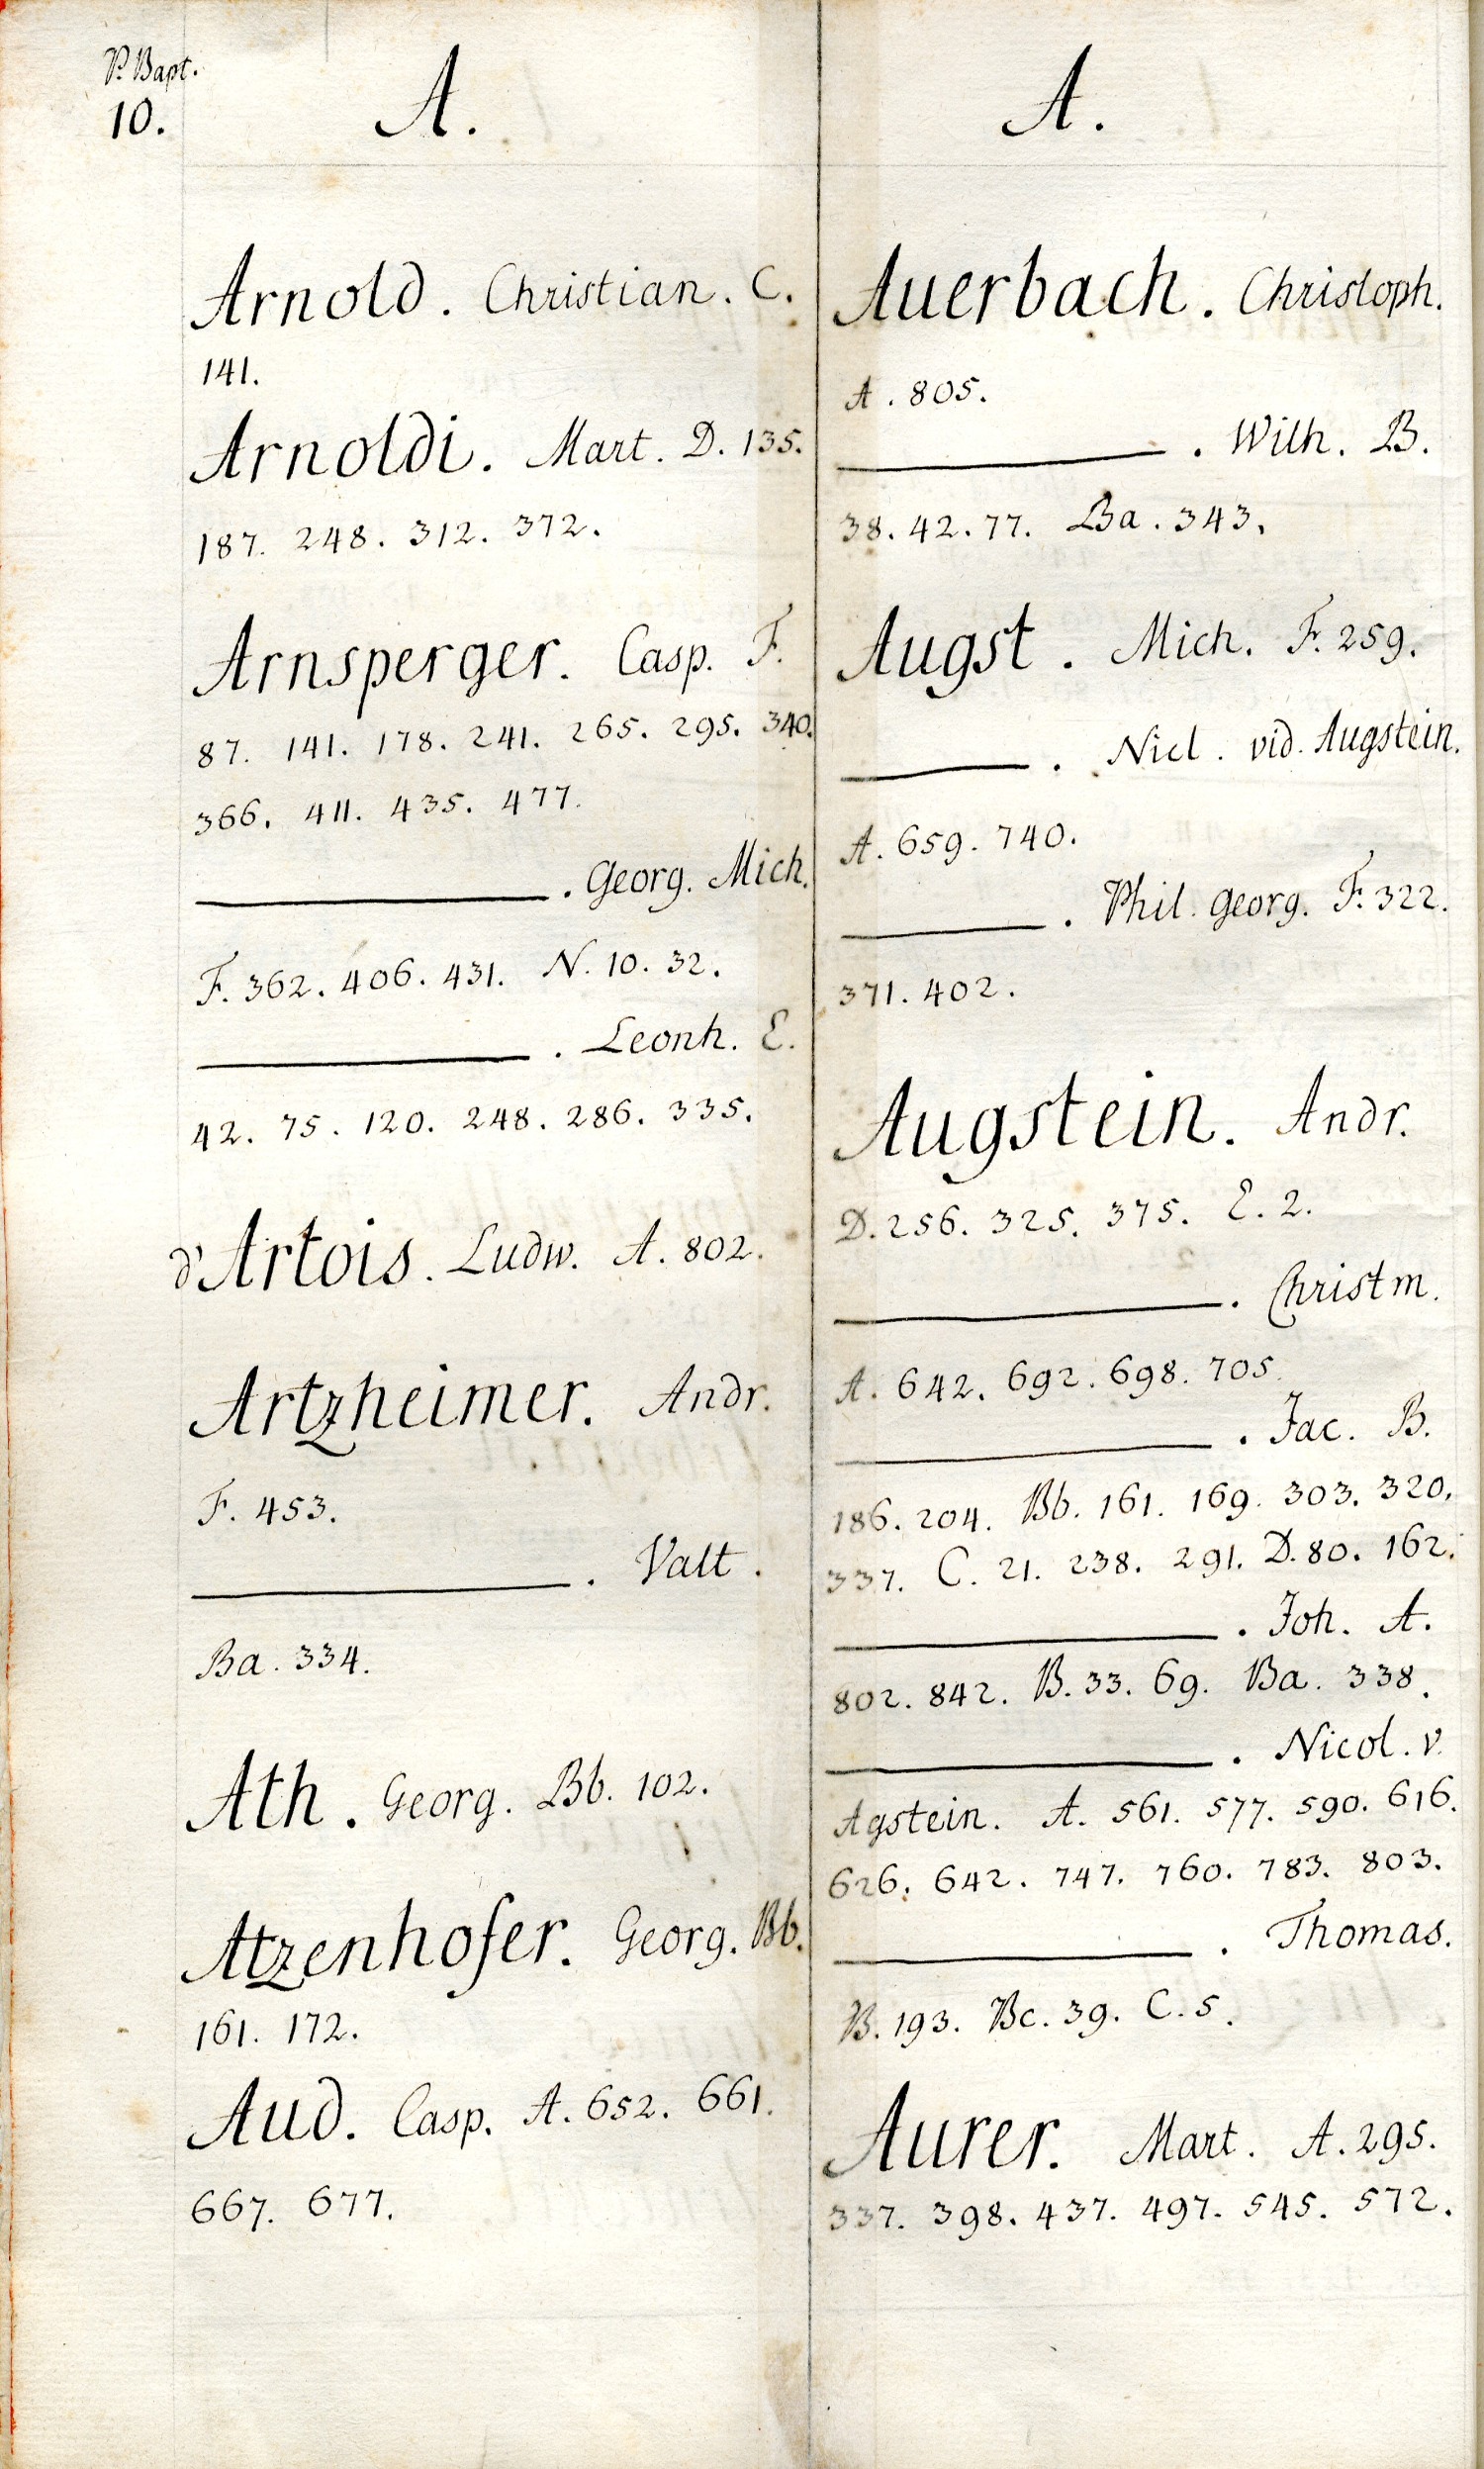 P. Bapt.
10.
A.
Arnold. Christian. C.
141.
Arnoldi. Mart. D. 135.
187. 248. 312. 372.
Arnsperger. Casp. F.
87. 141. 178. 241. 265. 295. 340.
366. 411. 435. 477.
———. Georg. Mich.
F. 362. 406. 431. N. 10. 32.
———. Leonh. E.
42. 75. 120. 248. 286. 335.
d'Artois. Ludw. A. 802.
Artzheimer. Andr.
F. 453.
———. Valt.
Ba. 334.
Ath. Georg. Bb. 102.
Atzenhofer. Georg. Bb.
161. 172.
Aud. Casp. A. 652. 661.
667. 677.
A.
Auerbach. Christoph.
A. 805.
———. Wilh. B.
38. 42. 77. Ba. 343.
Augst. Mich. F. 259.
———. Nicl. vid. Augstein.
A. 659. 740.
———. Phil. Georg. F. 322.
371. 402.
Augstein. Andr.
D. 256. 325. 375. E. 2.
———. Christm.
A. 642. 692. 698. 705.
———. Jac. B.
186. 204. Bb. 161. 169. 303. 320.
337. C. 21. 238. 291. D. 80. 162.
———. Joh. A.
802. 842. B. 33. 69. Ba. 338.
———. Nicol. v.
Agstein. A. 561. 577. 590. 616.
626. 642. 747. 760. 783. 803.
———. Thomas.
B. 193. Bc. 39. C. 5.
Aurer. Mart. A. 295.
337. 398. 437. 497. 545. 572.